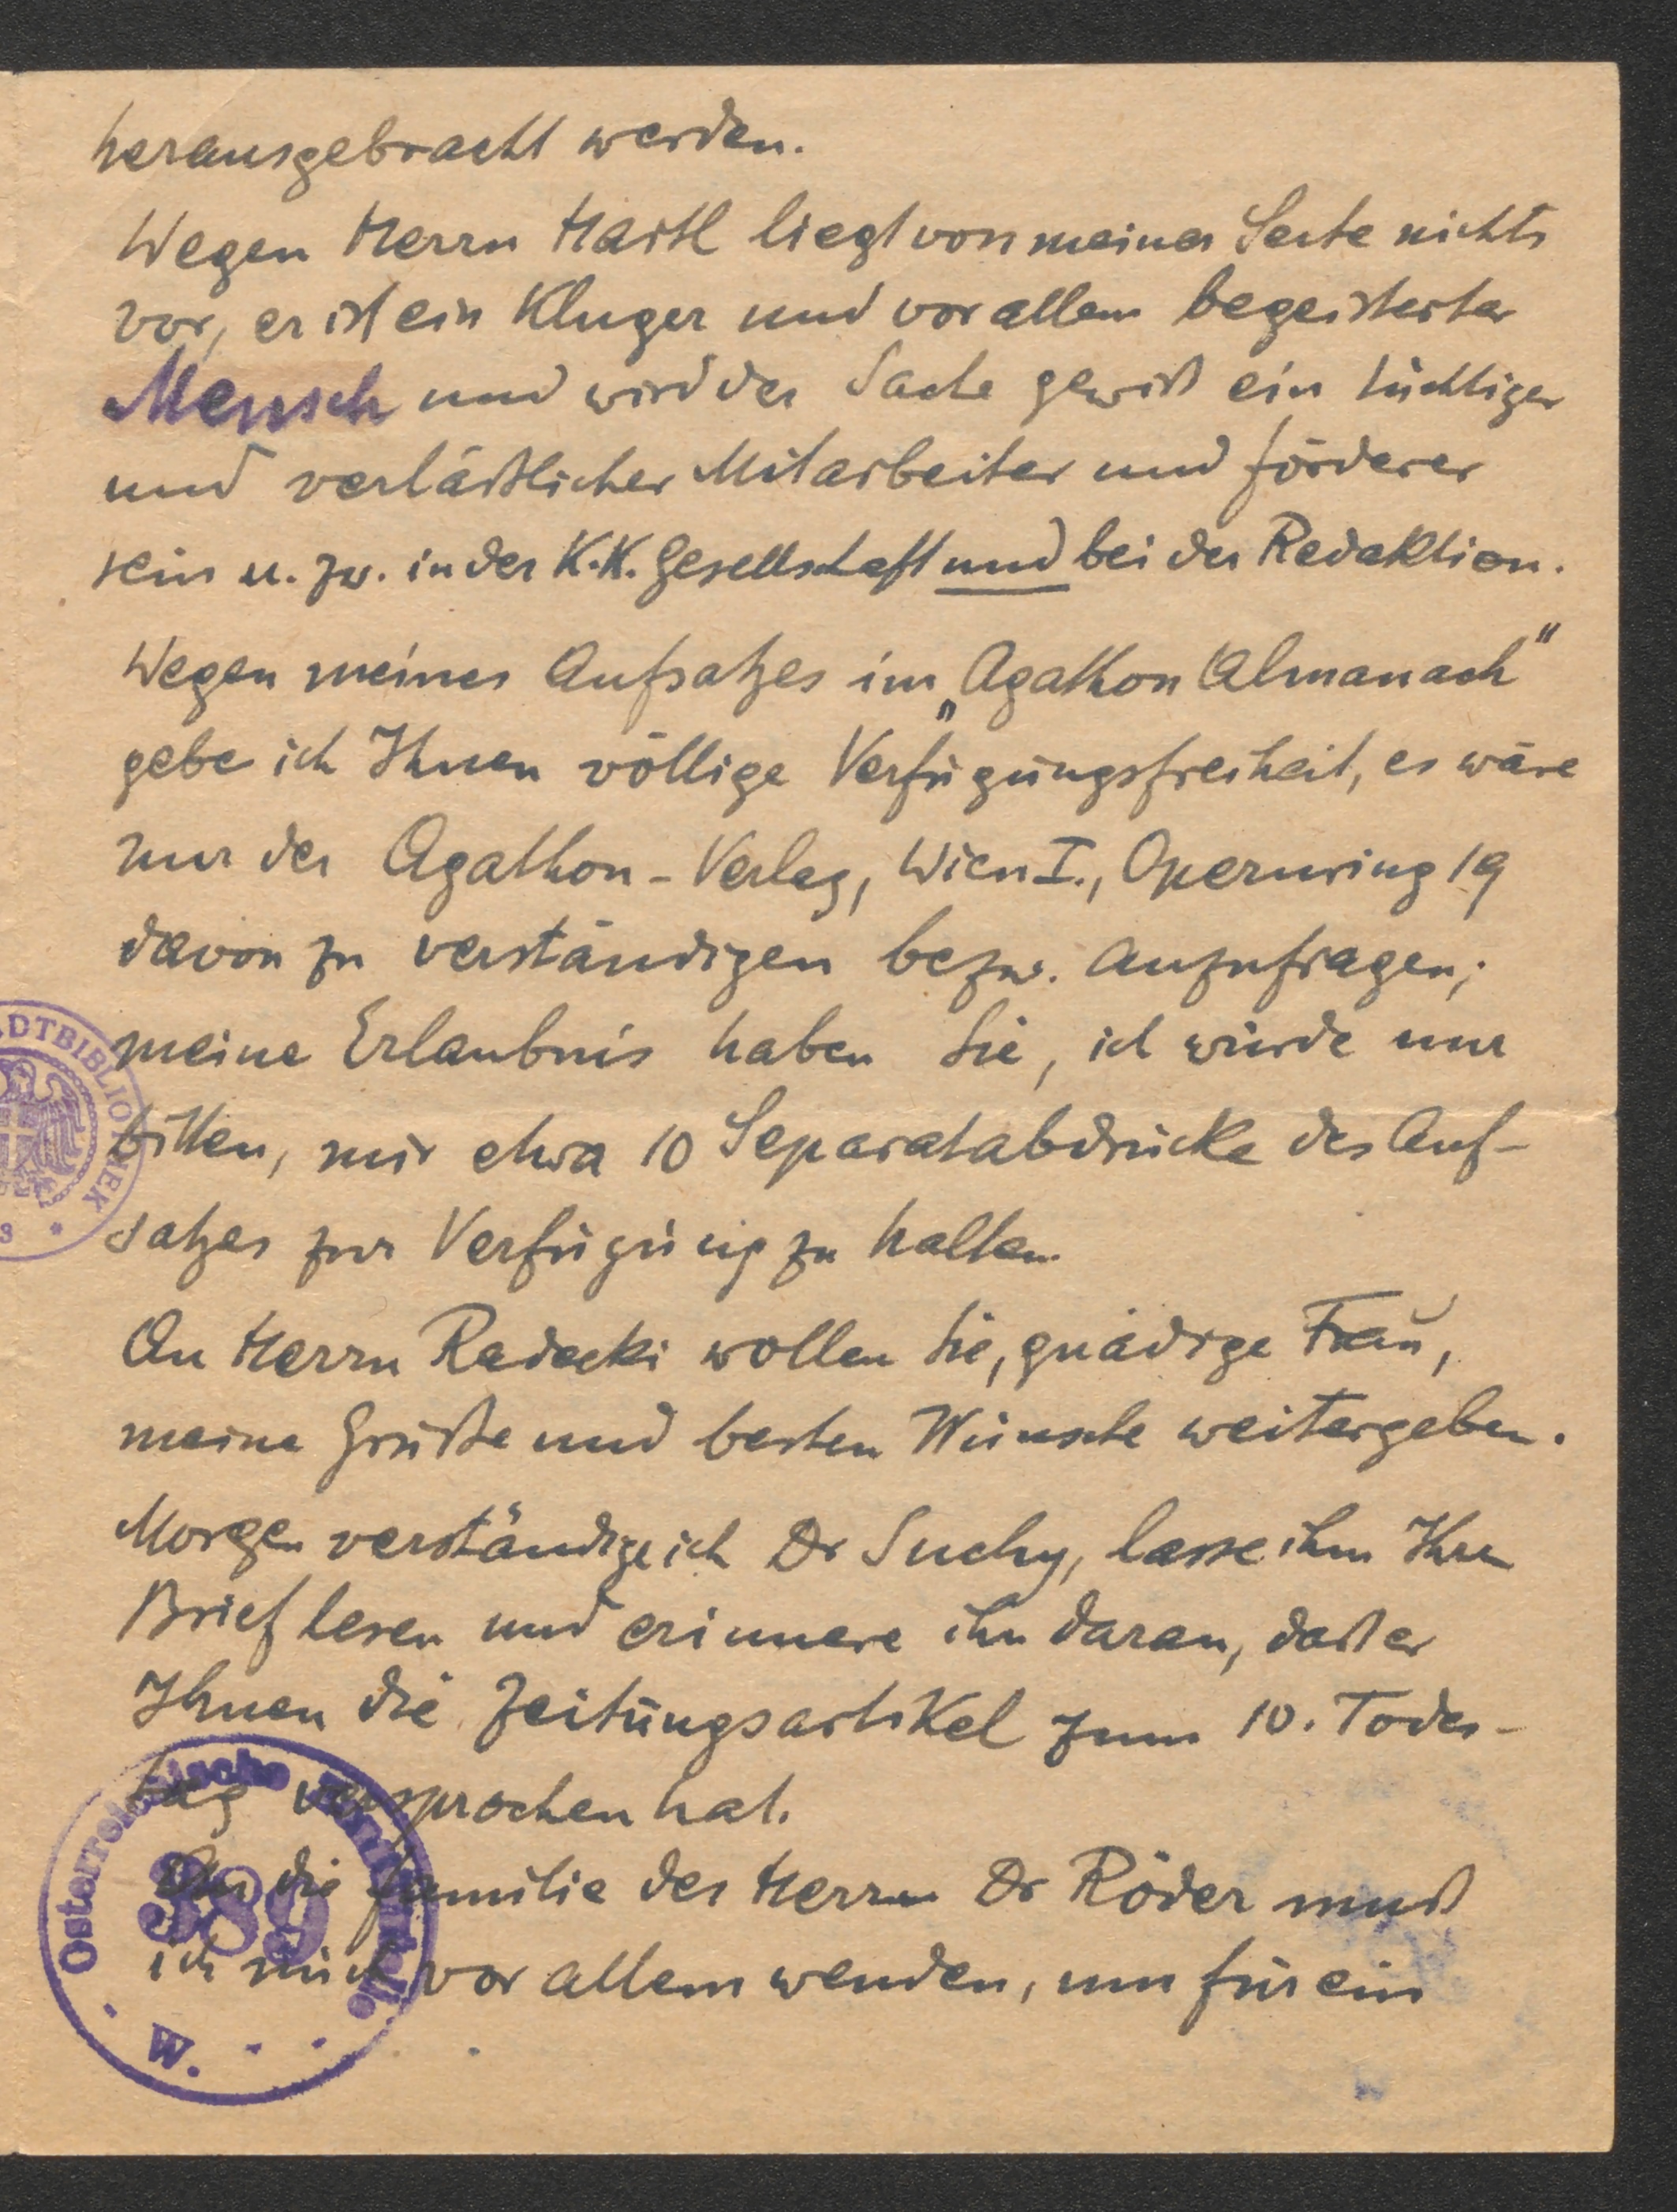 herausgebracht werden.
Wegen Herrn Hartl liegt von meiner Seite nichts
vor, er ist ein kluger und vor allem begeisterter
Mensch und wird der Sache gewiß ein tüchtiger
und verläßlicher Mitarbeiter und Förderer
sein u. zw. in der K.K. Gesellschaft und bei der Redaktion.
Wegen meines Aufsatzes im „Agathon Almanach"
gebe ich Ihnen völlige Verfügungsfreiheit, es wäre
nur der Agathon-Verlag, Wien I., Opernring 19
davon zu verständigen bezw. anzufragen;
meine Erlaubnis haben Sie, ich würde nur
bitten, mir etwa 10 Separatabdrücke des Auf-
satzes zur Verfügung zu halten.
An Herrn Radecki wollen Sie, gnädige Frau,
meine Grüße und besten Wünsche weitergeben.
Morgen verständige ich Dr Suchy, lasse ihm Ihren
Brief lesen und erinnere ihn daran, daß er
Ihnen die Zeitungsartikel zum 10. Todes-
tag versprochen hat.
An die Familie des Herrn Dr Röder muß
ich mich vor allem wenden, um für ein
ADTBIBLIOTHEK
Österreichische Zensurstelle
389
W.